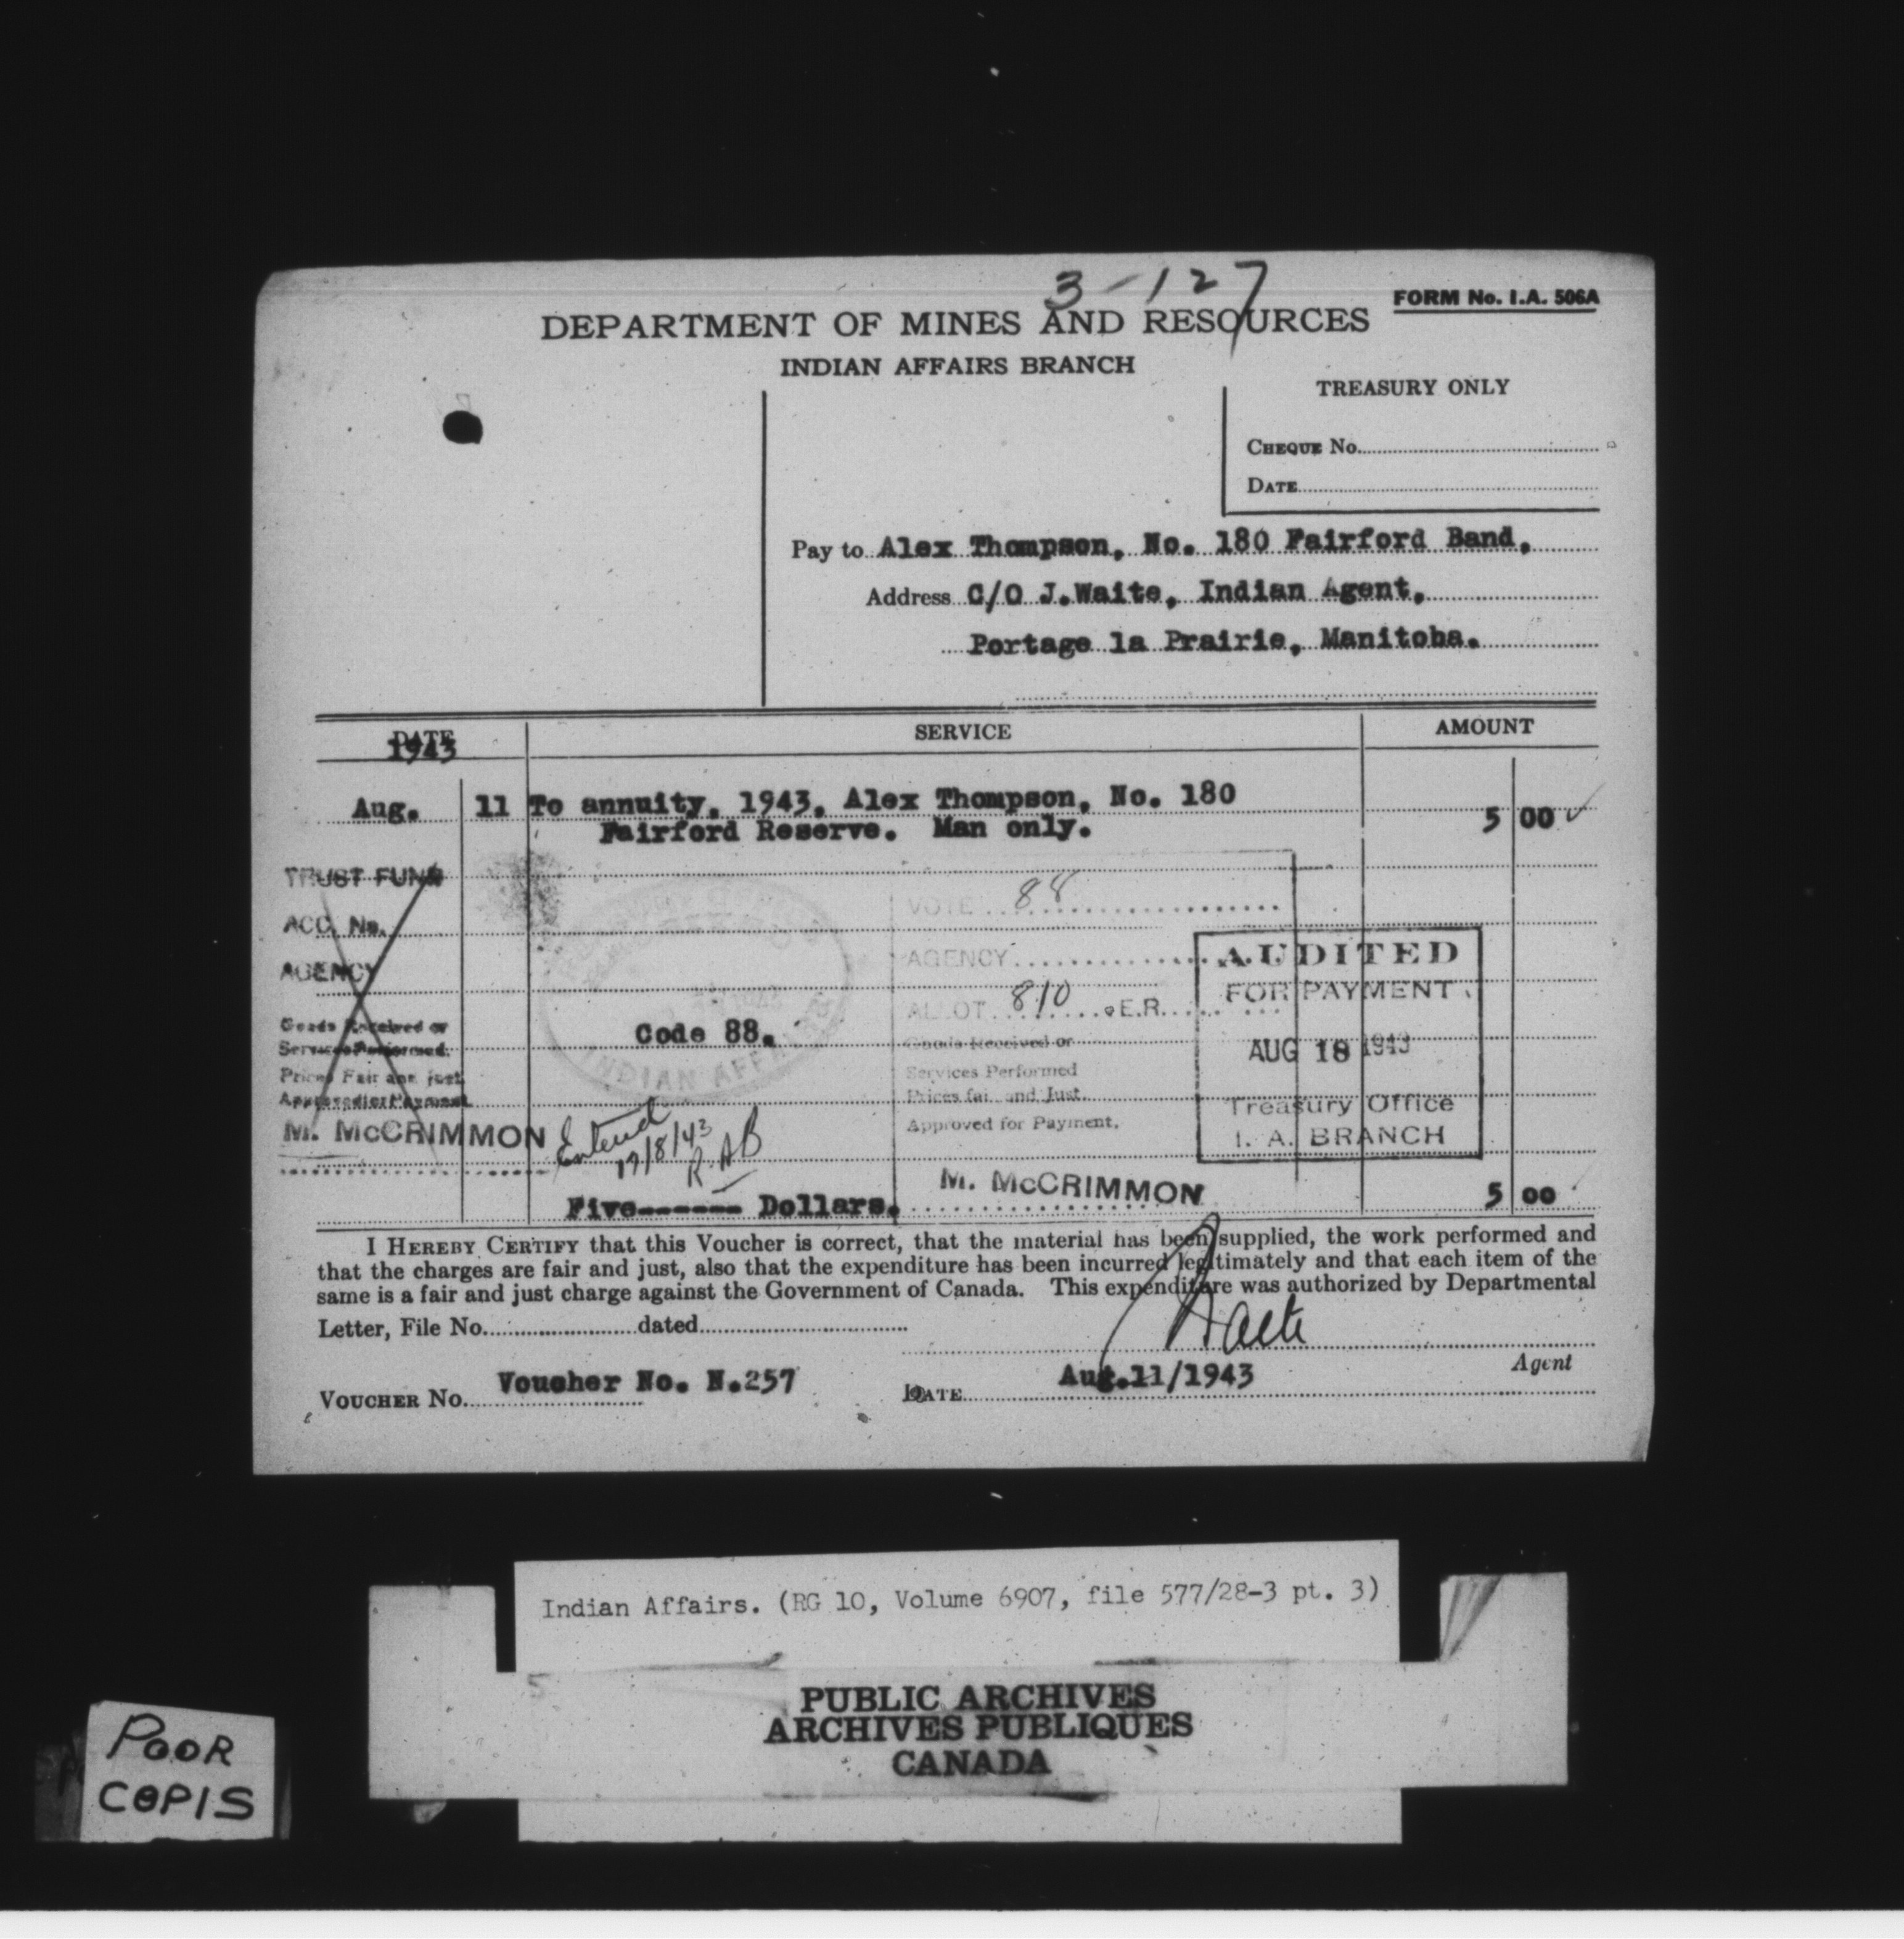 3-127
FORM No. I.A. 506A
DEPARTMENT OF MINES AND RESOURCES
INDIAN AFFAIRS BRANCH
TREASURY ONLY
CHEQUE No.
DATE
Pay to Alex Thompson, No. 180 Fairford Band,
Address C/O J.Waite, Indian Agent,
Portage la Prairie, Manitoba.
DATE SERVICE AMOUNT
1943
Aug. 11 To annuity, 1943, Alex Thompson, No. 180
Fairford Reserve. Man only. 5 00 ✓
TRUST FUND
ACC. No.
AGENCY
Goods Received or
Services Performed.
Prices Fair and just.
Approved for Payment
M. McCRIMMON
INDIAN AFFAIRS
Code 88.
VOTE 88
AGENCY
ALLOT. 810 E.R.
Goods Received or
Services Performed
Prices fair and Just.
Approved for Payment.
M. McCRIMMON
AUDITED
FOR PAYMENT
AUG 18 1943
Treasury Office
I. A. BRANCH
17/8/43
R.AB
Five------ Dollars. 5 00
I HEREBY CERTIFY that this Voucher is correct, that the material has been supplied, the work performed and
that the charges are fair and just, also that the expenditure has been incurred legitimately and that each item of the
same is a fair and just charge against the Government of Canada. This expenditure was authorized by Departmental
Letter, File No. dated
Waite
Agent
VOUCHER No. Voucher No. N.257
DATE Aug.11/1943
Indian Affairs. (RG 10, Volume 6907, file 577/28-3 pt. 3)
PUBLIC ARCHIVES
ARCHIVES PUBLIQUES
CANADA
POOR
COPIS